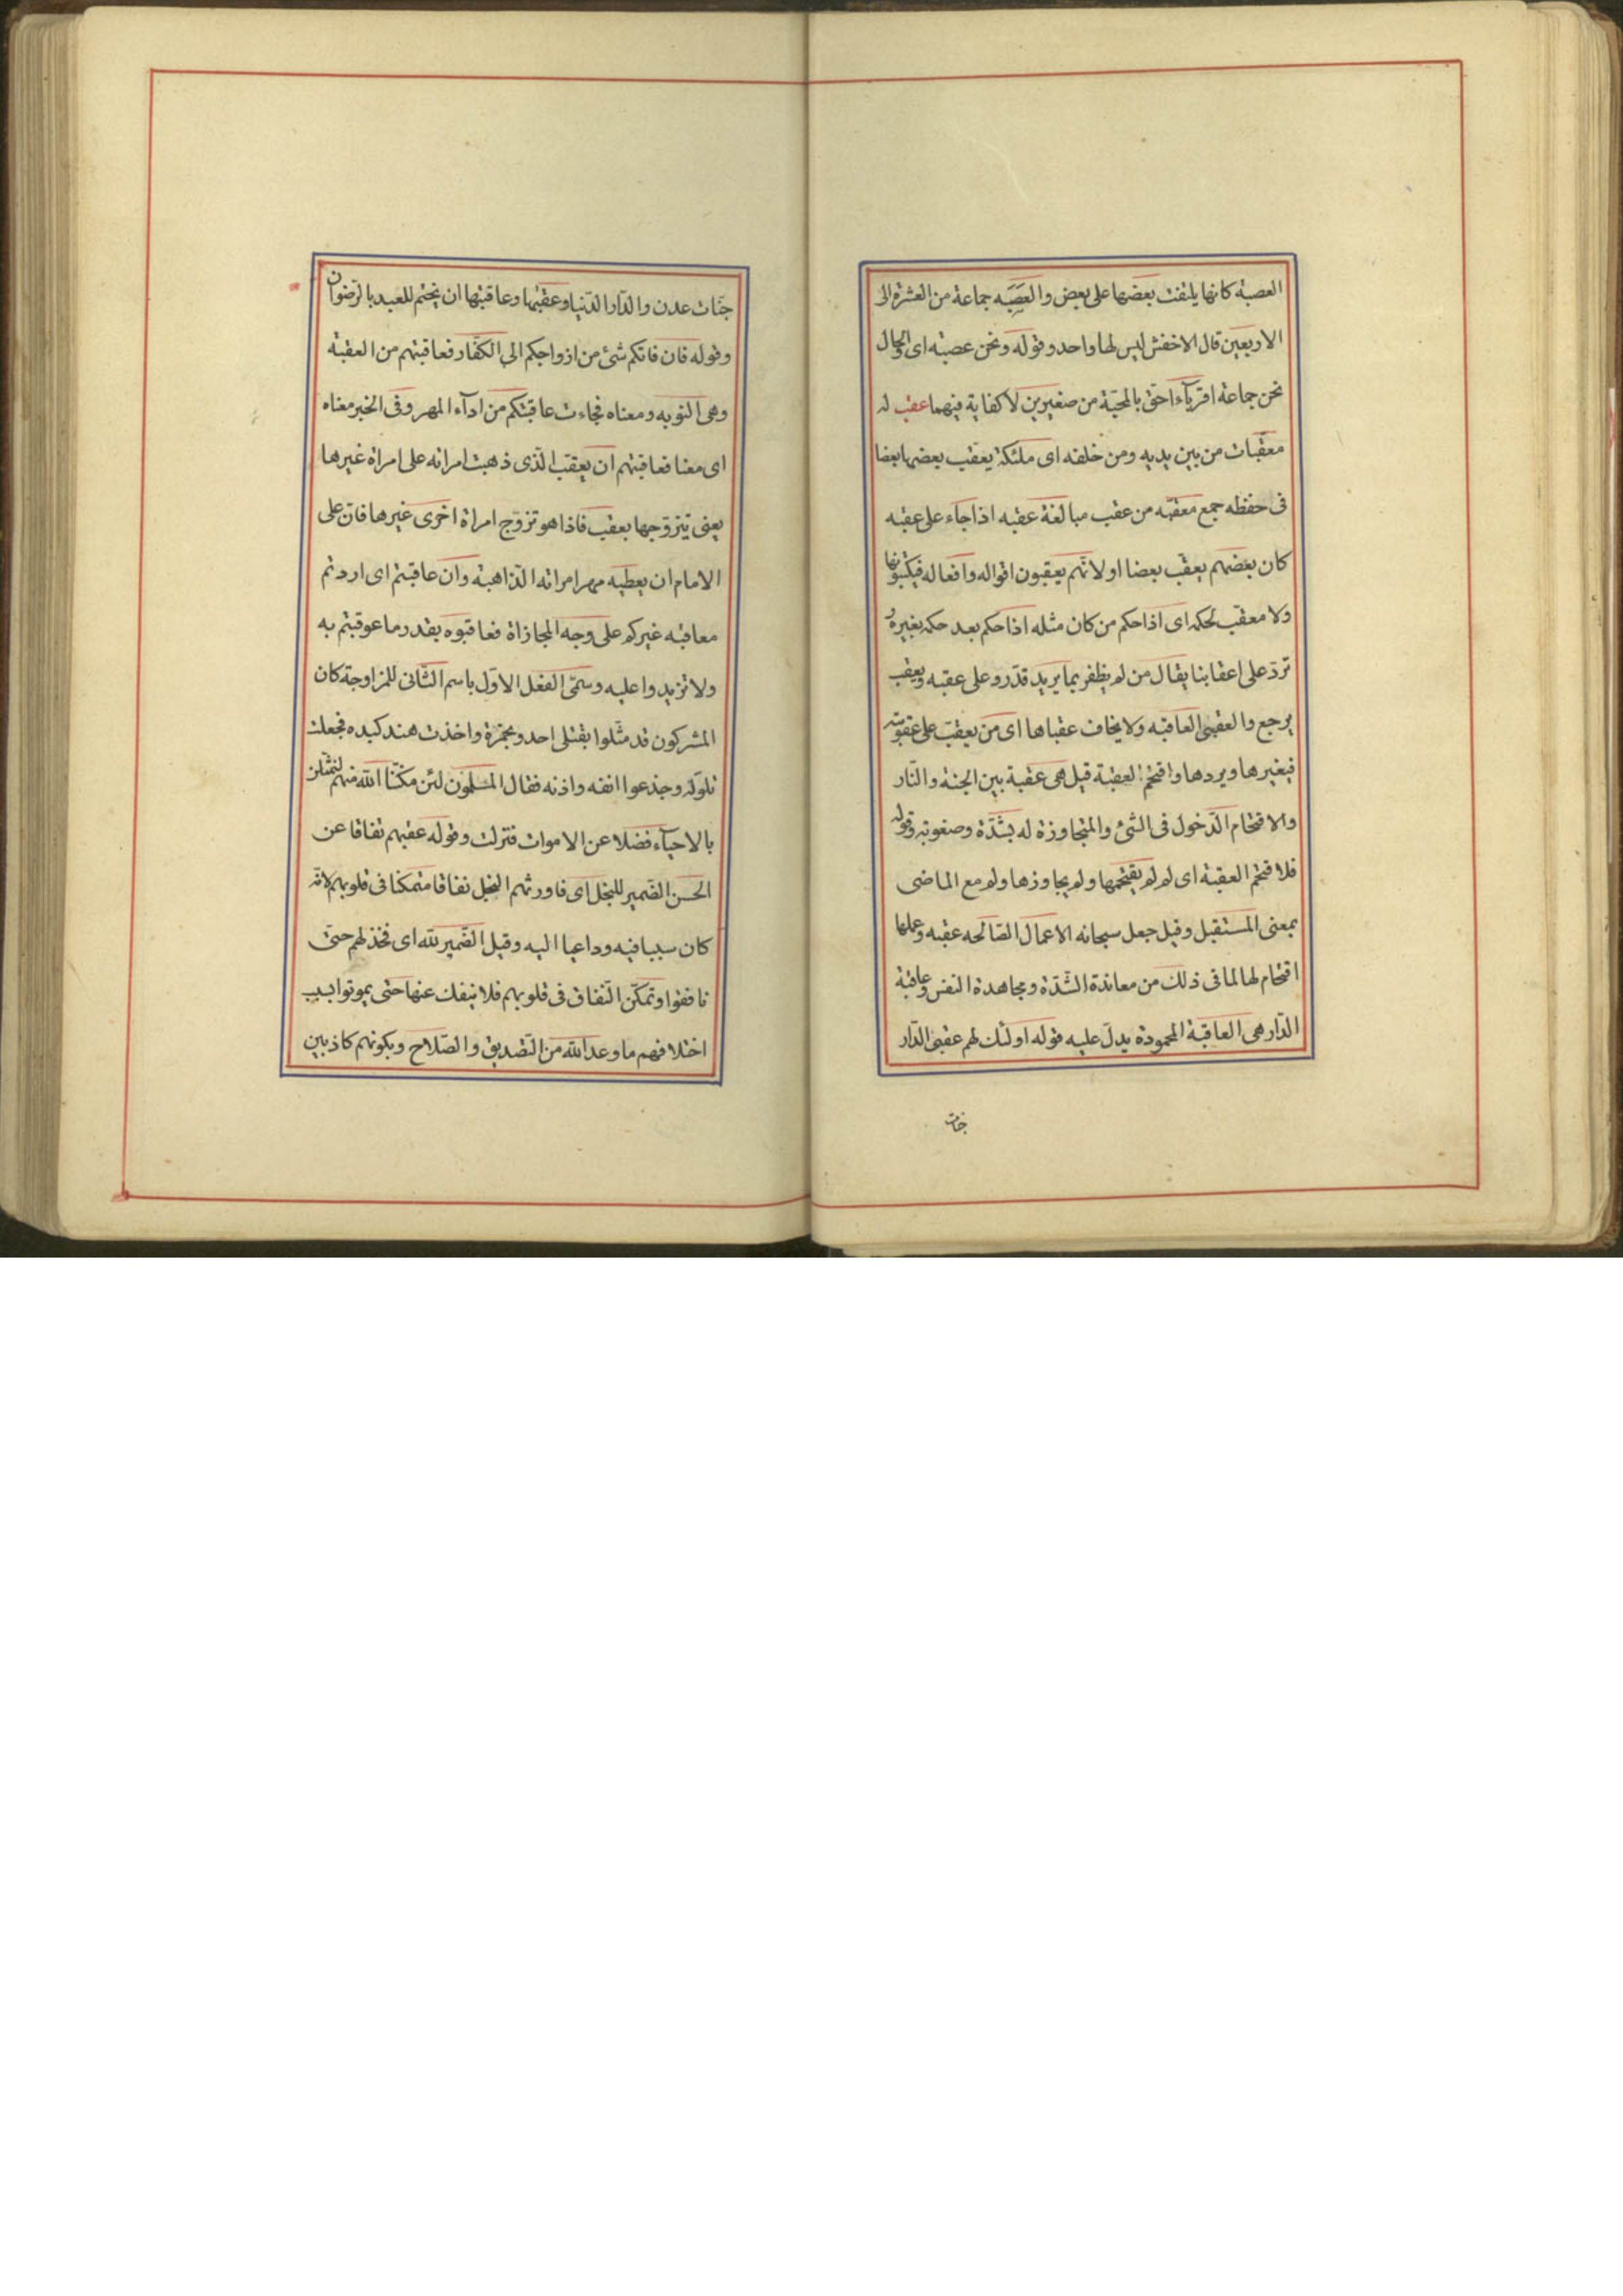 العصبة كانها يلتفت بعضها على بعض والعصبه جماعة من العشرة الى
الاربعين قال الاخفش ليس لها واحد وقوله ونحن عصبة اى والحال
نحن جماعة اقرباء احق بالمحبّة من صغيرين لا كفاية فيهما عقب له
معقّبات من بين يديه ومن خلفه اى ملئكة يعقب بعضها بعضا
فى حفظه جمع معقبّه من عقب مبالغة عقبه اذا جاء على عقبه
كان بعضهم يعقب بعضا او لانّهم يعقبون اقواله وافعاله فيكتبونها
ولا معقب لحكمه اى اذا حكم من كان مثله اذا حكم بعد حكمه بغيره
تردّ على اعقابنا يقال من لم يظفر بما يريد قد ردّ على عقبه ويعقب
يرجع والعقبى العاقبه ولا يخاف عقباها اى من يعقب على عقوبته
فيغيرها ويردها واقتحم العقبة قيل هى عقبة بين الجنة والنّار
والاقتحام الدّخول فى الشئ والمتجاوزة له بشدّة وصعوبة وقوله
فلا اقتحم العقبة اى لم لم يقتحمها ولم يجاوزها ولم مع الماضى
بمعنى المستقبل وقيل جعل سبحانه الاعمال الصّالحه عقبه وعملها
اقتحام لها لما فى ذلك من معاندة الشّدّة ومجاهدة النفس وعاقبة
الدّار هى العاقبة المحمودة يدلّ عليه قوله اولئك لهم عقبى الدّار
جنات
جنّات عدن والدّار الدّنيا وعقبها وعاقبتها ان يختم للعبد بالرّضوان
وقوله فان فاتكم شئ من ازواجكم الى الكفّار فعاقبتم من العقبة
وهى النوبه ومعناه فجاءت عاقبتكم من ادآء المهر وفى الخبر معناه
اى معنا فعاقبتم ان يعقب الّذى ذهبت امراته على امراة غيرها
يعنى تزوّجها بعقب فاذا هو تزوّج امراة اخرى غيرها فان على
الامام ان يعطيه مهر امراته الذّاهبة وان عاقبتم اى اردتم
معاقبه غيركم على وجه المجازاة فعاقبوه بقدر ما عوقبتم به
ولا تزيدوا عليه وسمّى الفعل الاوّل باسم الثّانى للمزاوجة كان
المشركون قد مثّلوا بقتلى احد وبحمزة واخذت هند كبده فجعلت
تلوكه وجذعوا انفه واذنه فقال المسلمون لئن مكنّا الله منهم لنمثّلن
بالاحيآء فضلا عن الاموات فنزلت وقوله عقبهم نفاقا عن
الحسن الضّمير للبخل اى فاورثهم البخل نفاقا متمكنا فى قلوبهم لانّه
كان سببا فيه وداعيا اليه وقيل الضّمير لله اى فخذلهم حتّى
نافقوا وتمكّن النّفاق فى قلوبهم فلا ينفك عنها حتى يموتوا بسبب
اختلافهم ما وعد الله من التّصديق والصّلاح وبكونهم كاذبين